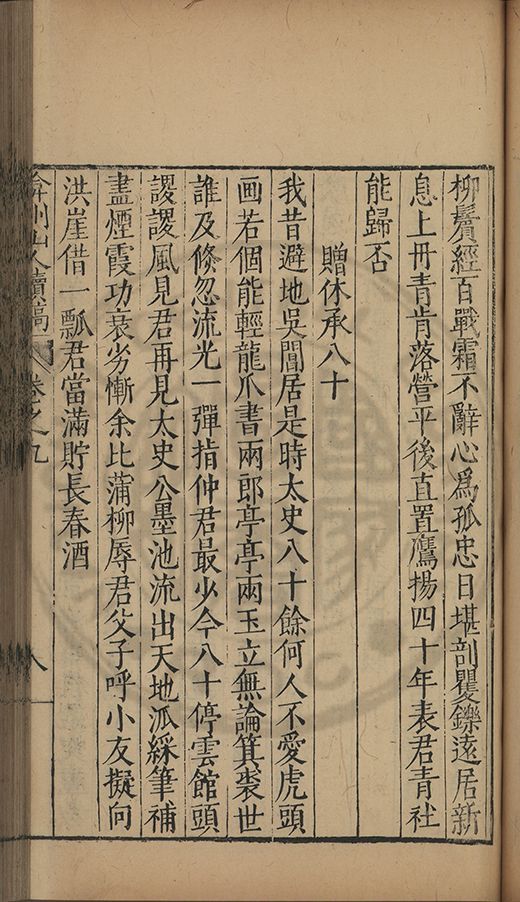 柳鬢經百戰霜不辭心爲孤忠日堪剖矍鑠遠居新
息上丹青肯落營平後直置鷹揚四十年表君青社
能歸否
贈休承八十
我昔避地吳閶居是時太史八十餘何人不愛虎頭
画若個能輕龍爪書兩郎亭亭兩玉立無論箕裘世
誰及倏忽流光一彈指仲君最少今八十停雲館頭
謖謖風見君再見太史公墨池流出天地泒綵筆補
盡煙霞功衰劣慚余比蒲柳辱君父子呼小友擬向
洪崖借一瓢君當滿貯長春酒
弇州山人續稿 卷之九 八